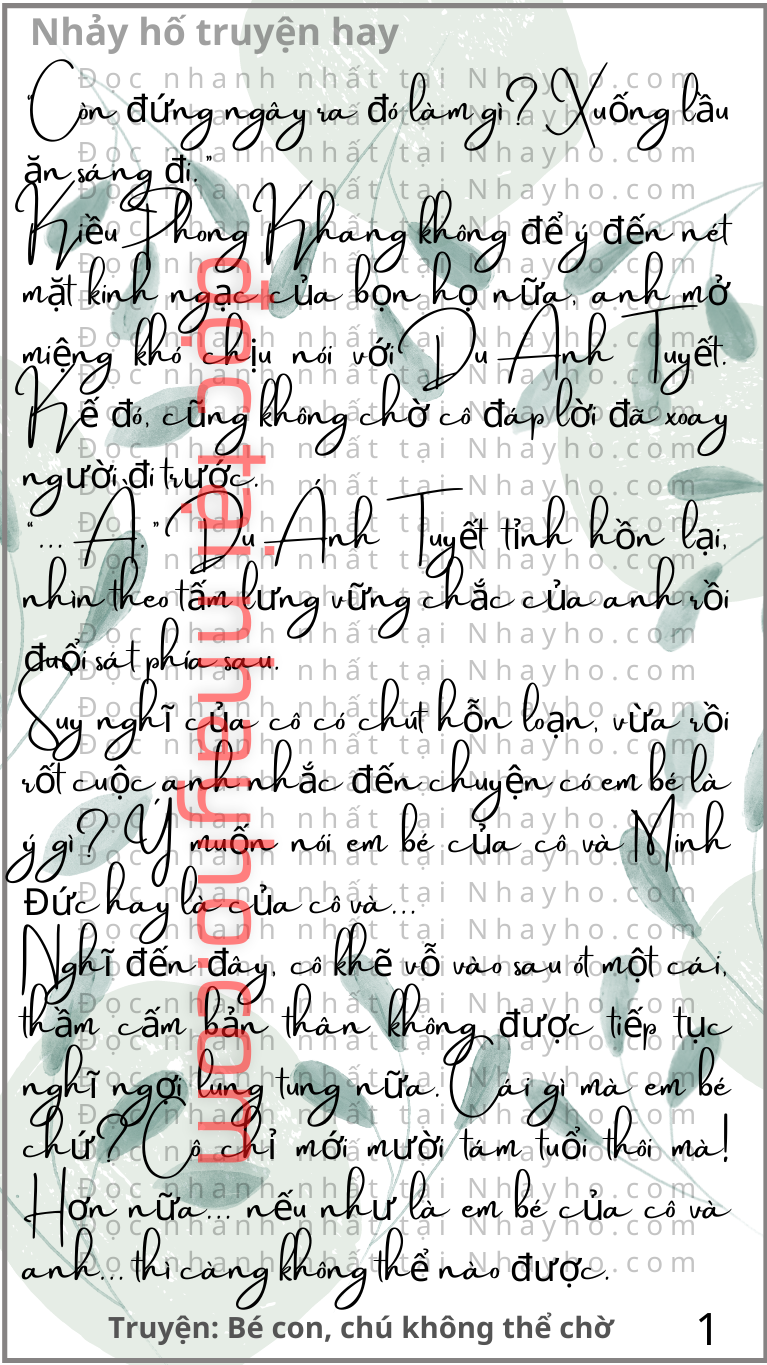 Nhảy hố truyện hay
"Còn đứng ngây ra đó làm gì? Xuống lầu
ăn sáng đi."
Kiều Phong Khang không để ý đến nét
mặt kinh ngạc của bọn họ nữa, anh mở
miệng khó chịu nói với Du Ánh Tuyết.
Kế đó, cũng không chờ cô đáp lời đã xoay
người đi trước.
"... A." Du Ánh Tuyết tỉnh hồn lại,
nhìn theo tấm lưng vững chắc của anh rồi
đuổi sát phía sau.
Suy nghĩ của cô có chút hỗn loạn, vừa rồi
rốt cuộc anh nhắc đến chuyện có em bé là
ý gì? Ý muốn nói em bé của cô và Minh
Đức hay là của cô và...
Nghĩ đến đây, cô khẽ vỗ vào sau ót một cái,
thầm cấm bản thân không được tiếp tục
nghĩ ngợi lung tung nữa. Cái gì mà em bé
chứ? Cô chỉ mới mười tám tuổi thôi mà!
Hơn nữa... nếu như là em bé của cô và
anh... thì càng không thể nào được.
đọc tại nhayho.com
Đọc nhanh nhất tại Nhayho.com
Truyện: Bé con, chú không thể chờ
1